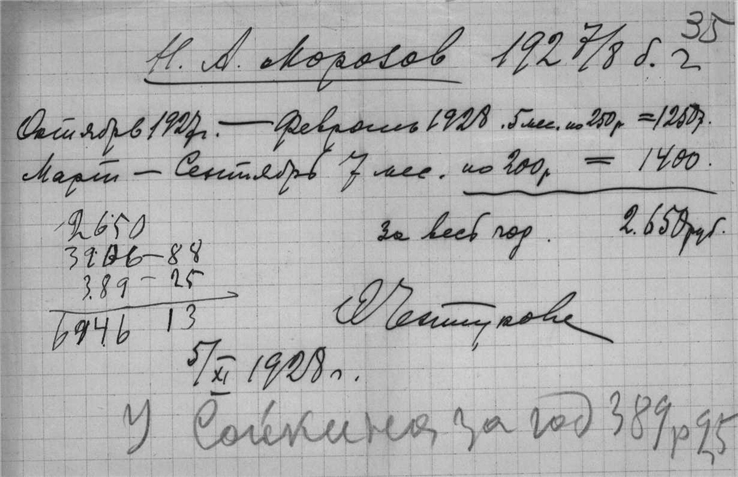 35
Н. А. Морозов 1927/8 б. г.
Октябрь 1927г. — Февраль 1928. 5 мес. по 250р = 1250р.
Март — Сентябрь 7 мес. по 200р = 1400.
за весь год. 2.650 руб.
2650
88
389 – 25
6946 13
5/XI 1928 г.
У Сойкина за год 389р 25